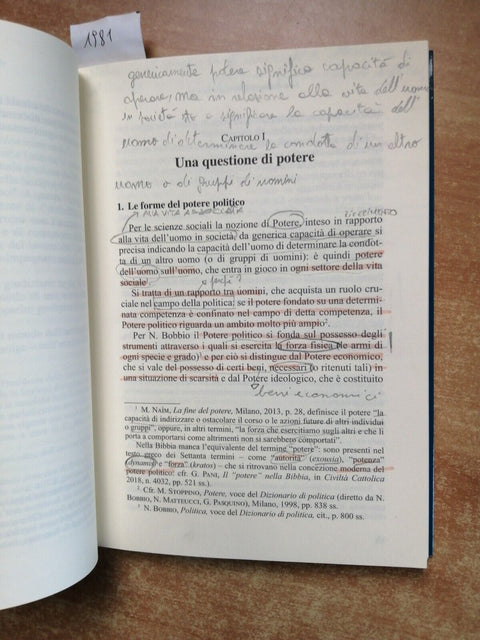 1981
genericamente potere significa capacità di
operare, ma in relazione alla vita dell'uomo
in società sta a significare la capacità dell'
CAPITOLO I
uomo di determinare la condotta di un altro
Una questione di potere
uomo o di gruppi di uomini
1. Le forme del potere politico
ALLA VITA ASSOCIATA
Per le scienze sociali la nozione di Potere, inteso in rapporto
alla vita dell'uomo in società, da generica capacità di operare si
precisa indicando la capacità dell'uomo di determinare la condot-
ta di un altro uomo (o di gruppi di uomini): è quindi potere
dell'uomo sull'uomo, che entra in gioco in ogni settore della vita
sociale¹.
Si tratta di un rapporto tra uomini, che acquista un ruolo cru-
ciale nel campo della politica: se il potere fondato su una determi-
nata competenza è confinato nel campo di detta competenza, il
Potere politico riguarda un ambito molto più ampio².
Per N. Bobbio il Potere politico si fonda sul possesso degli
strumenti attraverso i quali si esercita la forza fisica (le armi di
ogni specie e grado)³ e per ciò si distingue dal Potere economico,
che si vale del possesso di certi beni, necessari (o ritenuti tali) in
una situazione di scarsità e dal Potere ideologico, che è costituito
beni economici
¹ M. NAÌM, La fine del potere, Milano, 2013, p. 28, definisce il potere “la
capacità di indirizzare o ostacolare il corso o le azioni future di altri individui
o gruppi”; oppure, in altri termini, “la forza che esercitiamo sugli altri e che li
porta a comportarsi come altrimenti non si sarebbero comportati”.
Nella Bibbia manca l'equivalente del termine “potere”: sono presenti nel
testo greco dei Settanta termini – come “autorità” (exousia), “potenza”
(dynamis) e “forza” (kratos) – che si ritrovano nella concezione moderna del
potere politico: cfr. G. PANI, Il “potere” nella Bibbia, in Civiltà Cattolica
2018, n. 4032, pp. 521 ss.).
² Cfr. M. STOPPINO, Potere, voce del Dizionario di politica (diretto da N.
BOBBIO, N. MATTEUCCI, G. PASQUINO), Milano, 1998, pp. 838 ss.
³ N. BOBBIO, Politica, voce del Dizionario di politica, cit., p. 800 ss.